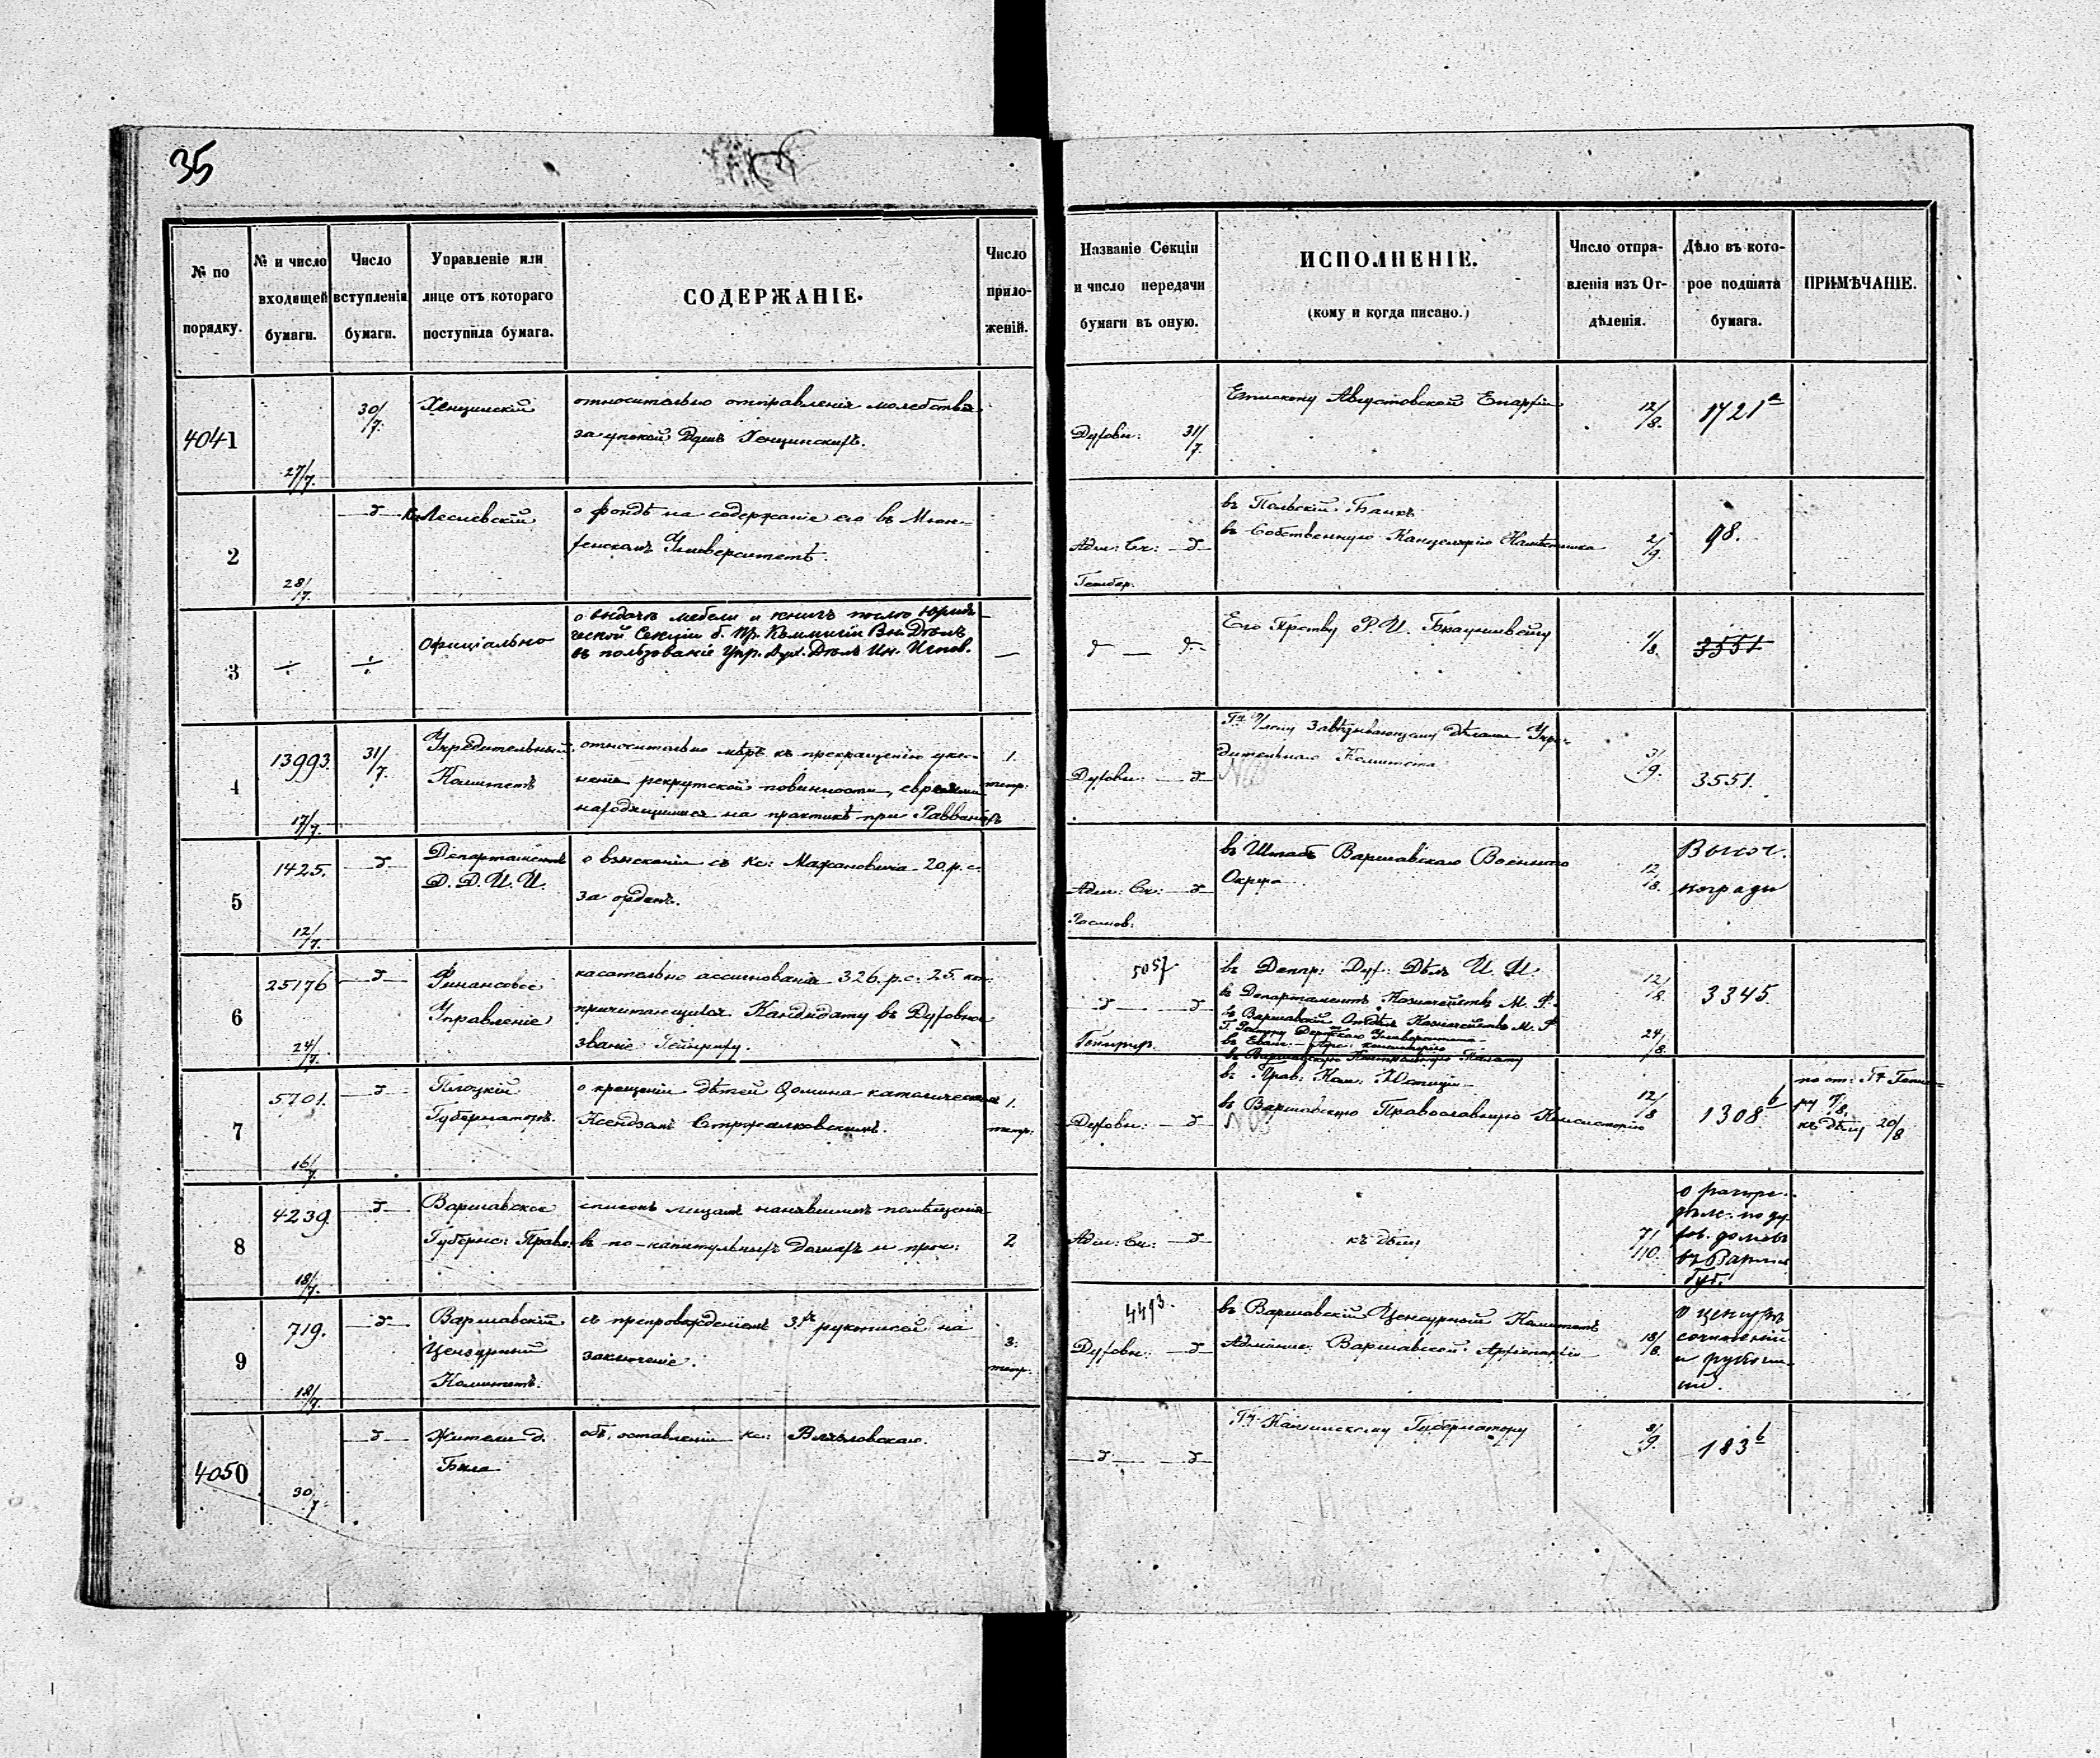 35
№ по
порядку.
№ и число
входящей
бумаги.
Число
вступленія
бумаги.
Управленіе или
лице отъ котораго
поступила бумага.
СОДЕРЖАНІЕ.
Число
прило-
женій.
Названіе Секціи
и число передачи
бумаги въ оную.
ИСПОЛНЕНІЕ.
(кому и когда писано.)
Число отпра-
вленія изъ От-
дѣленія.
Дѣло въ кото-
рое подшита
бумага.
ПРИМѢЧАНІЕ.
4041
27/7.
30/7.
Хенцинскій
относительно отправленія молебствія
за упокой Душъ Хенцинскихъ.
Духовн: 31/7.
Епископу Августовской Епархіи
12/8.
1721 а
2
28/7.
Лесневскій
о фондѣ на содержаніе его въ Мюн-
хенскомъ Университетѣ.
Адм: Ск:
въ Польскій Банкъ
въ Собственную Канцелярію Намѣстника
2/9.
98.
3
Офиціально
о выдачѣ мебели и книгъ послѣ Юриди-
ческой Секціи б. Пр. Коммисіи Вн. Дѣлъ
въ пользованіе Упр. Дух. Дѣлъ Ин. Испов.
—
Его Прству Р. И. Брауншвейгу
1/8.
3551
4
13993.
17/7.
31/7.
Учредительный
Комитетъ
относительно мѣръ къ прекращенію укло-
ненія рекрутской повинности, евреями
находящимися на практикѣ при Раввинахъ
1.
тетр:
Духовн:
Завѣдывающему дѣлами Учре-
дительнаго Комитета
3/9.
3551.
5
1425.
12/7.
Департаментъ
Д. Д. И. И.
о взысканіи съ Кс: Махановича 20 р. с.
за орденъ.
Адм: Ск:
въ Штабъ Варшавскаго Военнаго
Округа
12/8.
Высоч.
награды
6
25176
24/7.
Финансовое
Управленіе
касательно ассигнованія 326 р. с. 25. коп:
причитающихся Кандидату въ Духовное
званіе Гейнриху.
5057
въ Департ: Дух: Дѣлъ И. И.
въ Департаментъ Казначейства М. Ф.
въ Варшавскій Отдѣлъ Казначейства М. Ф.
Г. Ректору Дерптскаго Университета
въ Варшавскую Контрольную Палату
12/8.
24/8.
3345
7
5701.
16/7.
Плоцкій
Губернаторъ.
о крещеніи дѣтей Римско-католическихъ
Ксендзомъ Стржалковскимъ.
1.
тетр:
Духовн:
въ Прав: Ком: Юстиціи
въ Варшавскую Православную Консисторію
12/8
1308 b
къ дѣлу 20/8
8
4239.
18/7.
Варшавское
Губернс: Правл:
списокъ лицамъ нанявшимъ помѣщенія
въ по-капитульныхъ домахъ и проч:
2
Адм: Ск:
къ дѣлу
7/10.
въ Варшав
Губ.
9
719.
18/7.
Варшавскій
Цензурный
Комитетъ.
съ препровожденіемъ 3хъ рукописей на
заключеніе.
3.
тетр.
4493.
Духовн:
въ Варшавскій Цензурный Комитетъ
Админис: Варшавской Архіепархіи
18/8.
о цензурѣ
сочиненій
и рукопи-
сей.
4050
30/7
Жители д.
Бяла
объ оставленіи кс:
Калишскому Губернатору
8/9.
183 b